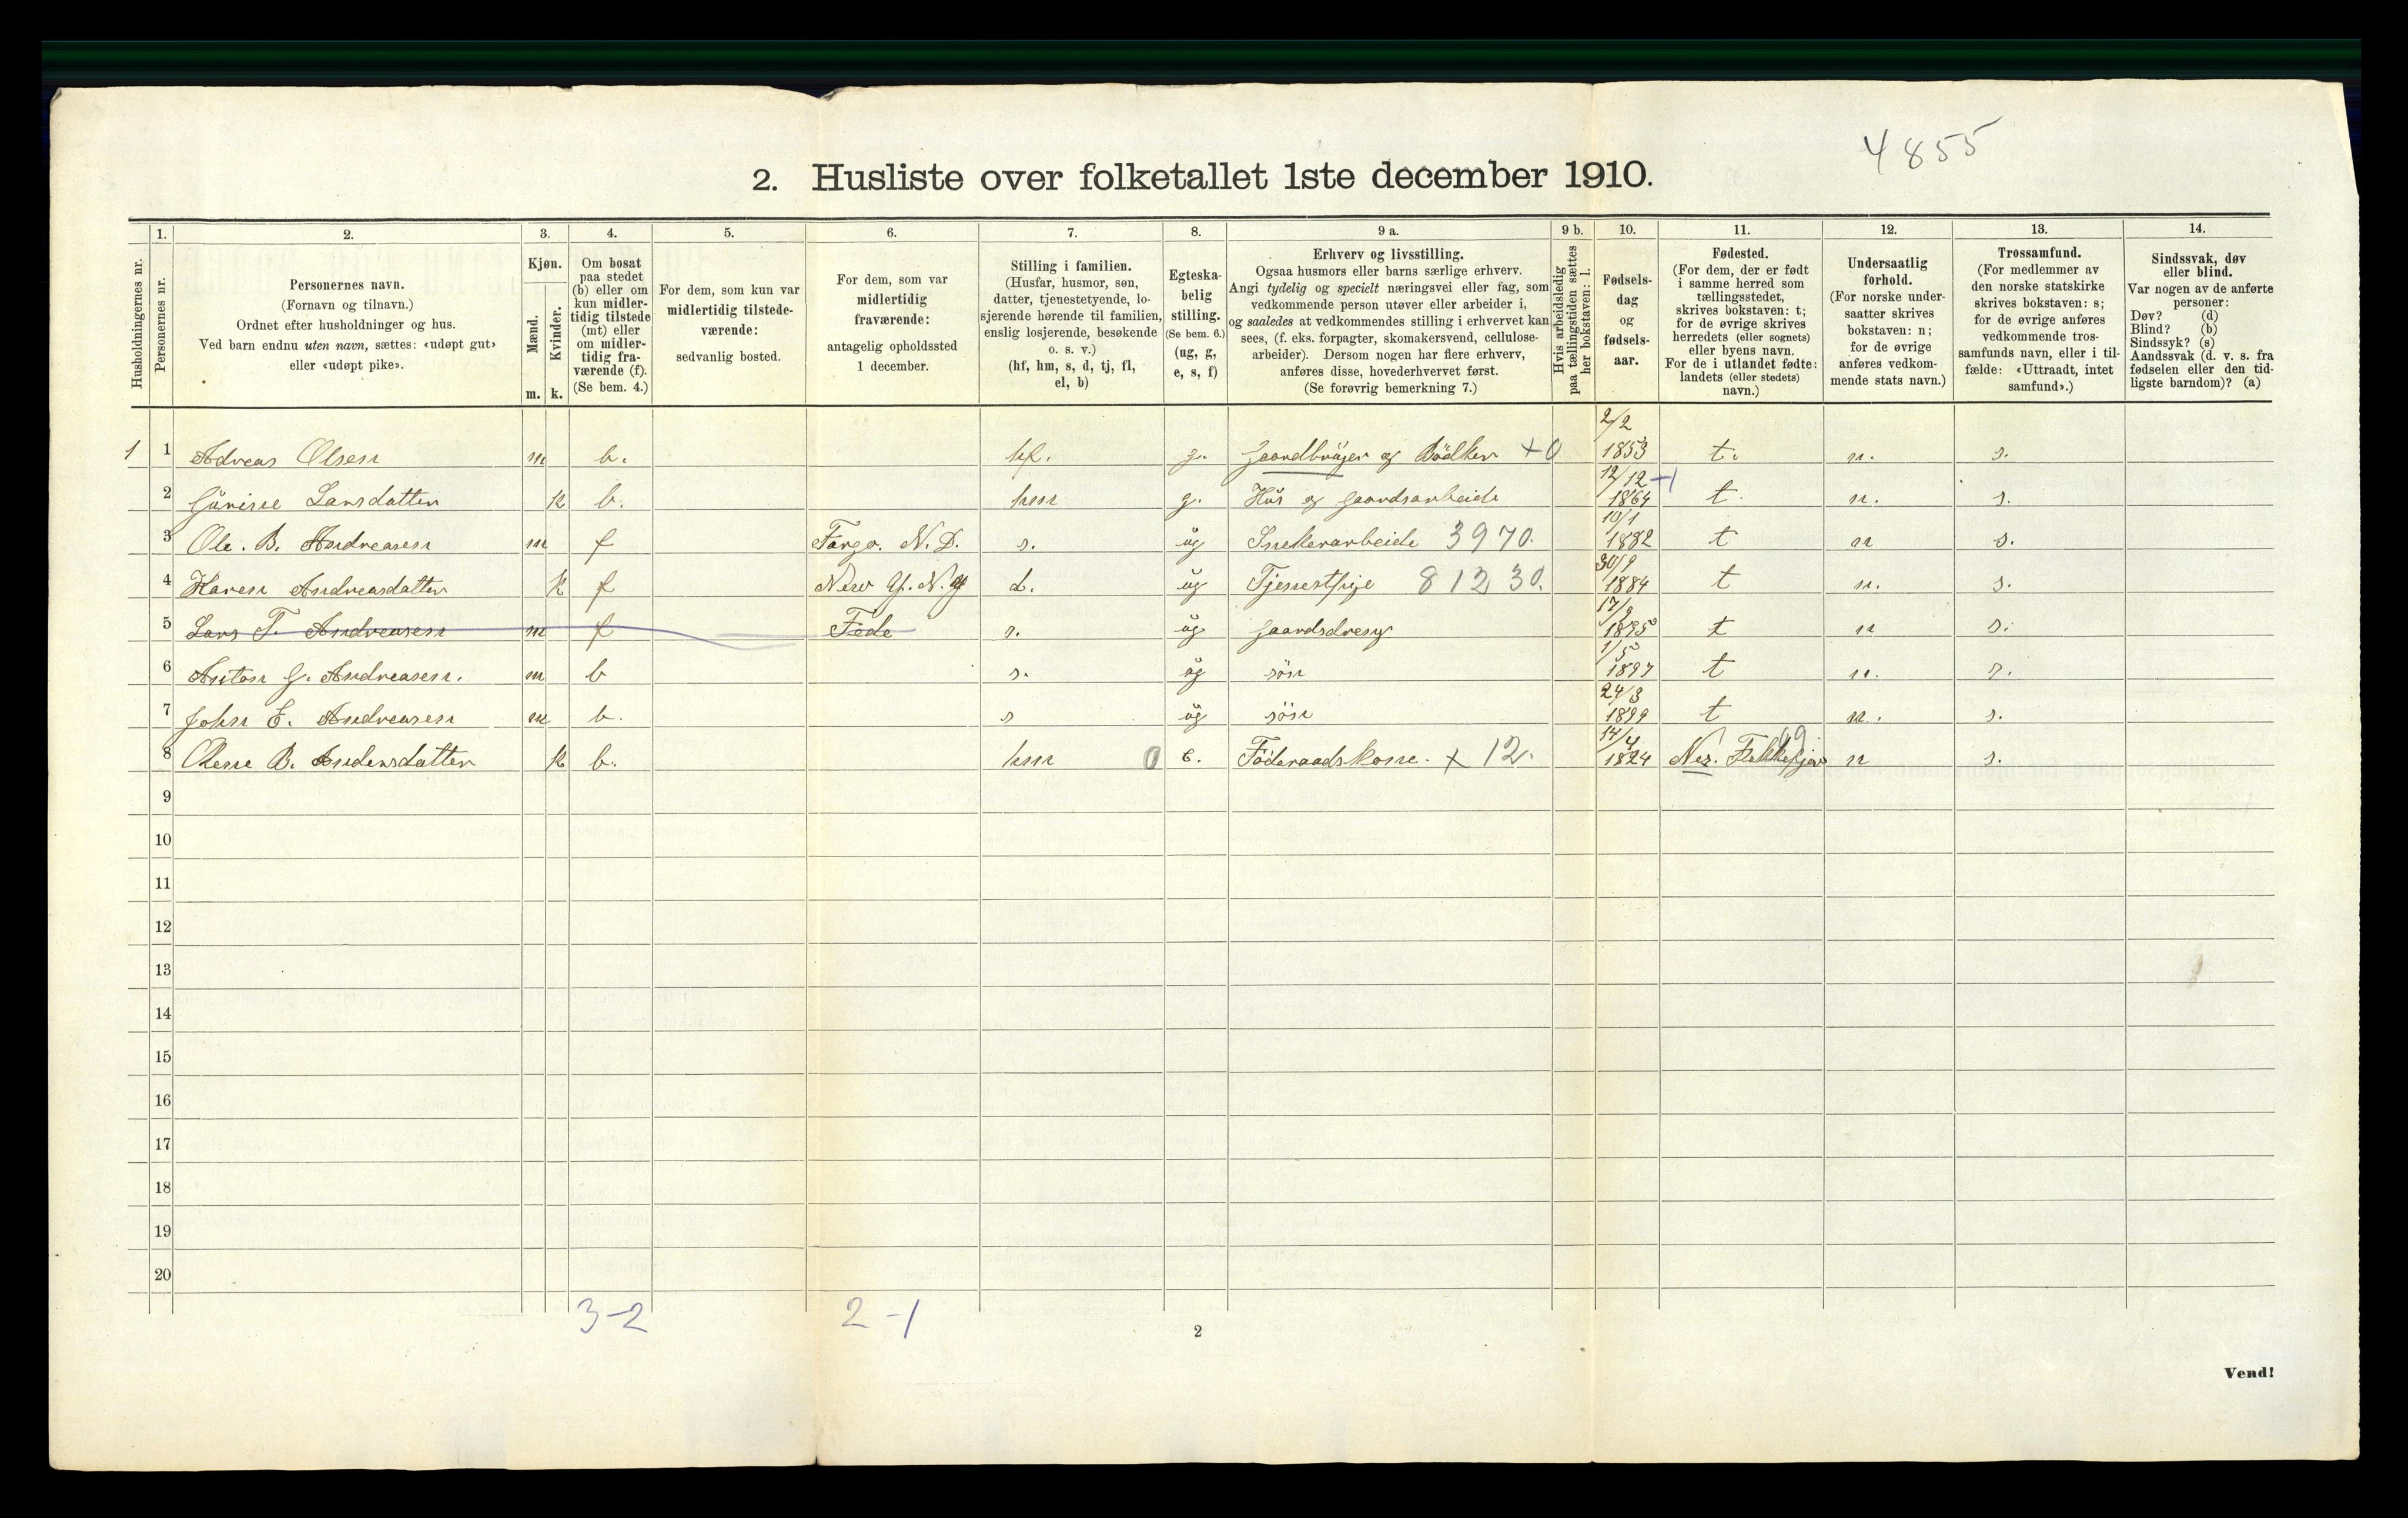 4855
2. Husliste over folketallet 1ste december 1910.
Husholdningernes nr.
1.
Personernes nr.
2.
Personernes navn.
(Fornavn og tilnavn.)
Ordnet efter husholdninger og hus.
Ved barn endnu uten navn, sættes: «udøpt gut»
eller «udøpt pike».
3.
Kjøn.
Mænd.
Kvinder.
m. k.
4.
Om bosat
paa stedet
(b) eller om
kun midler-
tidig tilstede
(mt) eller
om midler-
tidig fra-
værende (f).
(Se bem. 4.)
5.
For dem, som kun var
midlertidig tilstede-
værende:
sedvanlig bosted.
6.
For dem, som var
midlertidig
fraværende:
antagelig opholdssted
1 december.
7.
Stilling i familien.
(Husfar, husmor, søn,
datter, tjenestetyende, lo-
sjerende hørende til familien,
enslig losjerende, besøkende
o. s. v.)
(hf, hm, s, d, tj, fl,
el, b)
8.
Egteska-
belig
stilling.
(Se bem. 6.)
(ug, g,
e, s, f)
9 a.
Erhverv og livsstilling.
Ogsaa husmors eller barns særlige erhverv.
Angi tydelig og specielt næringsvei eller fag, som
vedkommende person utøver eller arbeider i,
og saaledes at vedkommendes stilling i erhvervet kan
sees, (f. eks. forpagter, skomakersvend, cellulose-
arbeider). Dersom nogen har flere erhverv,
anføres disse, hovederhvervet først.
(Se forøvrig bemerkning 7.)
9 b.
Hvis arbeidsledig
paa tællingstiden sættes
her bokstaven: l.
10.
Fødsels-
dag
og
fødsels-
aar.
11.
Fødested.
(For dem, der er født
i samme herred som
tællingsstedet,
skrives bokstaven: t;
for de øvrige skrives
herredets (eller sognets)
eller byens navn.
For de i utlandet fødte:
landets (eller stedets)
navn.)
12.
Undersaatlig
forhold.
(For norske under-
saatter skrives
bokstaven: n;
for de øvrige
anføres vedkom-
mende stats navn.)
13.
Trossamfund.
(For medlemmer av
den norske statskirke
skrives bokstaven: s;
for de øvrige anføres
vedkommende tros-
samfunds navn, eller i til-
fælde: «Uttraadt, intet
samfund».)
14.
Sindssvak, døv
eller blind.
Var nogen av de anførte
personer:
Døv? (d)
Blind? (b)
Sindssyk? (s)
Aandssvak (d. v. s. fra
fødselen eller den tid-
ligste barndom)? (a)
1 1 Adreas Olsen m b. hf. g. Gaardbrüger og Bödker +0 2/2 1853 t. n. s.
2 Gürine Larsdatter k b. hm g. Hüs og gaardsarbeide 12/12 -1 1864 t. n. s.
3 Ole. B. Andreasen m f Fargo. N. D. s. üg Snekerarbeide 3970. 10/1 1882 t n s.
4 Karen Andreasdatter k f New Y. N. Y d. üg Tjenestpige 81230. 30/9 1884 t n. s.
5 Lars T. Andreasen m f Fede s. üg gaardsdreng 17/9 1895 t n s.
6 Anton G. Andreasen. m b s. üg sön 1/5 1897 t n. s.
7 John E. Andreasen m b. s üg sön 24/3 1899 t n. s.
8 B. Andersdatter k b. hm 0 e. Föderaadskone. + 12. 14/4 1824 Nes. n s.
9
10
11
12
13
14
15
16
17
18
19
20
3-2 2-1
2
Vend!